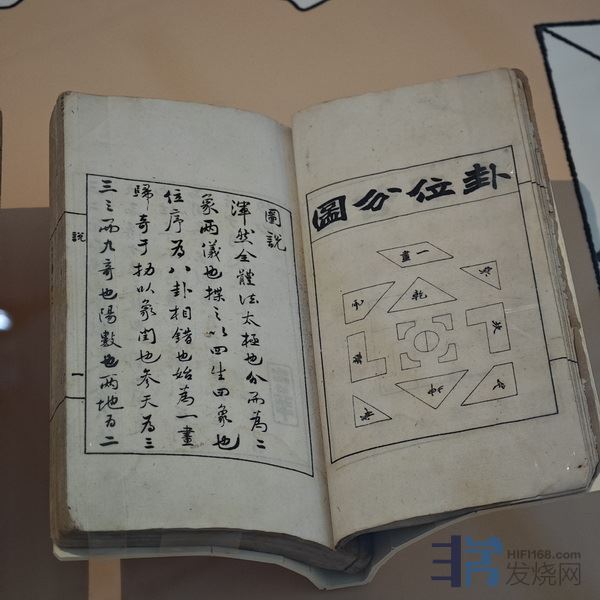 卦位分圖
一畫
乾
坤
圖說
渾然全體法太極也分而為二
象兩儀也揲之以四生四象也
位序為八卦相錯也始為一畫
歸奇于扐以象閏也參天為三
三之而九奇也陽數也兩地為二
說
一
HIFI168.com
发烧网